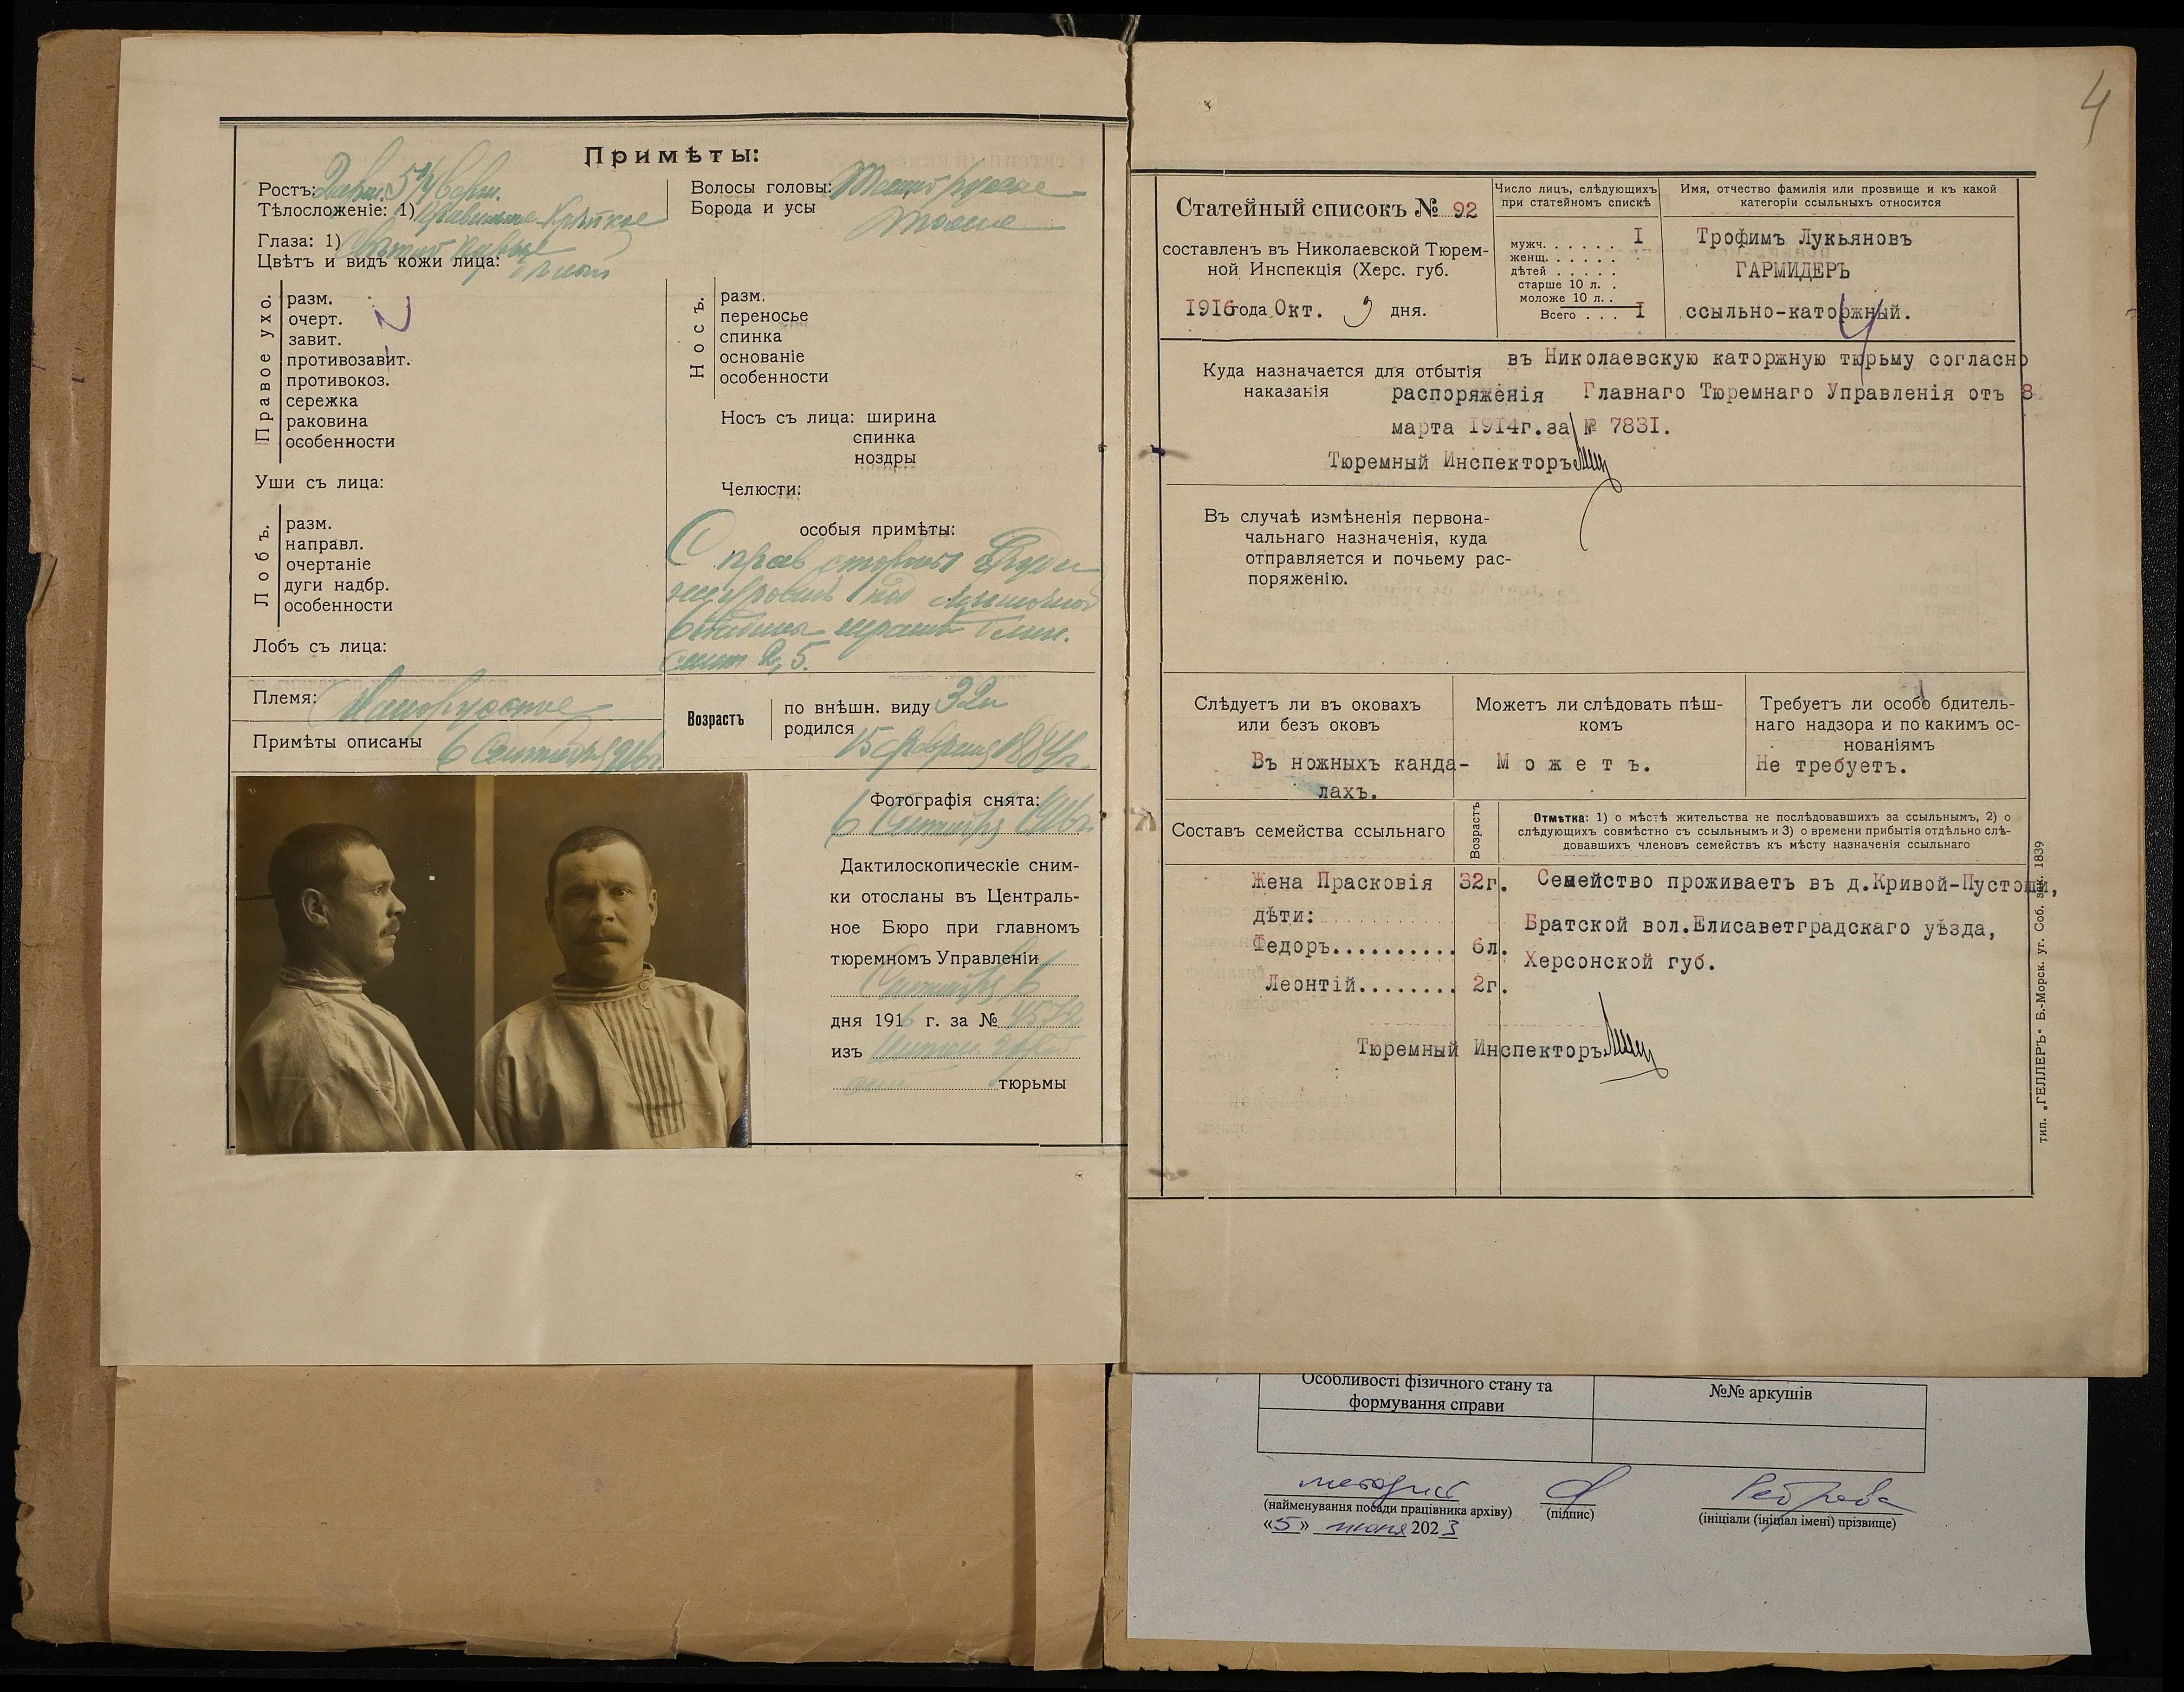 Примѣты:
Ростъ: 2 арш. 5 1/4 верш.
Тѣлосложеніе: 1)
Глаза: 1)
Цвѣтъ и видъ кожи лица:
Волосы головы: Темно русые
Борода и усы
Правое ухо.
разм.
очерт.
завит.
противозавит.
противокоз.
сережка
раковина
особенности
Уши съ лица:
Лобъ.
разм.
направл.
очертаніе
дуги надбр.
особенности
Лобъ съ лица:
Носъ.
разм.
переносье
спинка
основаніе
особенности
Носъ съ лица: ширина
спинка
ноздры
Челюсти:
особыя примѣты:
С прав стороны груди
шрамъ
2,5.
Племя: Малорусское
Примѣты описаны 6 Сентября 916г.
Возрастъ
по внѣшн. виду 32 л
родился 15 февраля 1884г.
Фотографія снята:
6 Сентября 1916г.
Дактилоскопическіе сним-
ки отосланы въ Централь-
ное Бюро при главномъ
тюремномъ Управленіи
Сентября 6
дня 1916 г. за №
изъ
тюрьмы
4
Статейный списокъ № 92
составленъ въ Николаевской Тюрем-
ной Инспекція (Херс. губ.
1916 года Окт. 9 дня.
Число лицъ, слѣдующихъ
при статейномъ спискѣ
мужч. . . . . . I
женщ. . . . . .
дѣтей . . . . .
старше 10 л. .
моложе 10 л. .
Всего . . . I
Имя, отчество фамилія или прозвище и къ какой
категоріи ссыльныхъ относится
Трофимъ Лукьяновъ
ГАРМИДЕРЪ
ссыльно-каторжный.
Куда назначается для отбытія
наказанія
въ Николаевскую каторжную тюрьму согласно
распоряженія Главнаго Тюремнаго Управленія отъ 8
марта 1914г.за № 7831.
Тюремный Инспекторъ
Въ случаѣ измѣненія первона-
чальнаго назначенія, куда
отправляется и почьему рас-
поряженію.
Слѣдуетъ ли въ оковахъ
или безъ оковъ
Въ ножныхъ канда-
лахъ.
Можетъ ли слѣдовать пѣш-
комъ
Можетъ.
Требуетъ ли особо бдитель-
наго надзора и по какимъ ос-
нованіямъ
Не требуетъ.
Составъ семейства ссыльнаго
Возрастъ
Отмѣтка: 1) о мѣстѣ жительства не послѣдовавшихъ за ссыльнымъ, 2) о
слѣдующихъ совмѣстно съ ссыльнымъ и 3) о времени прибытія отдѣльно слѣ-
довавшихъ членовъ семействъ къ мѣсту назначенія ссыльнаго
Жена Прасковія 32г.
дѣти:
Федоръ.......... 6л.
Леонтій........ 2г.
Семейство проживаетъ въ д.Кривой-Пустоши,
Братской вол.Елисаветградскаго уѣзда,
Херсонской губ.
Тюремный Инспекторъ
тип. „ГЕЛЛЕРЪ" Б.-Морск. уг. Соб. зак. 1839
Особливості фізичного стану та
формування справи
№№ аркушів
методист
(найменування посади працівника архіву)
(підпис)
(ініціали (ініціал імені) прізвище)
«5» июня 2023